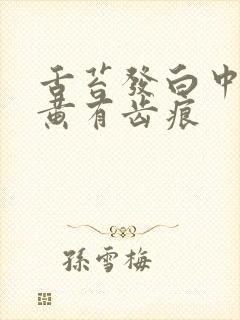 舌苔發白中
黄有齿痕
孫雪梅